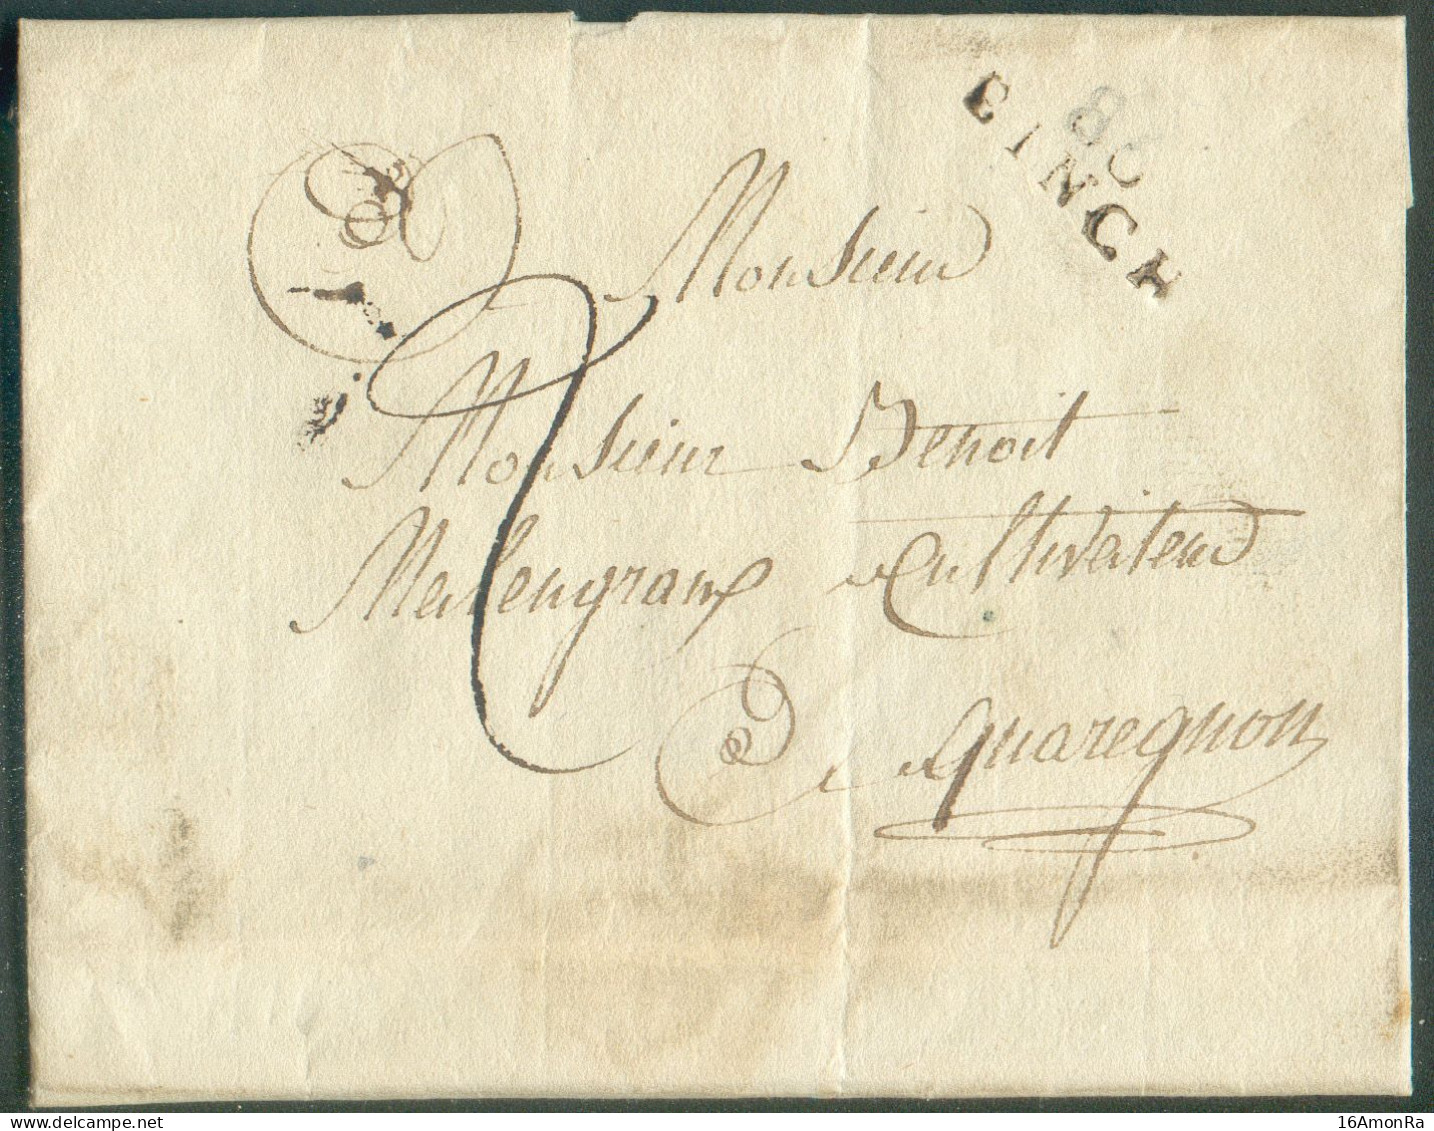 86
BINCH
A
Monsieur
Monsieur Benoit
Malengraux Cultivateur
2
A quaregnon
16AmonRa